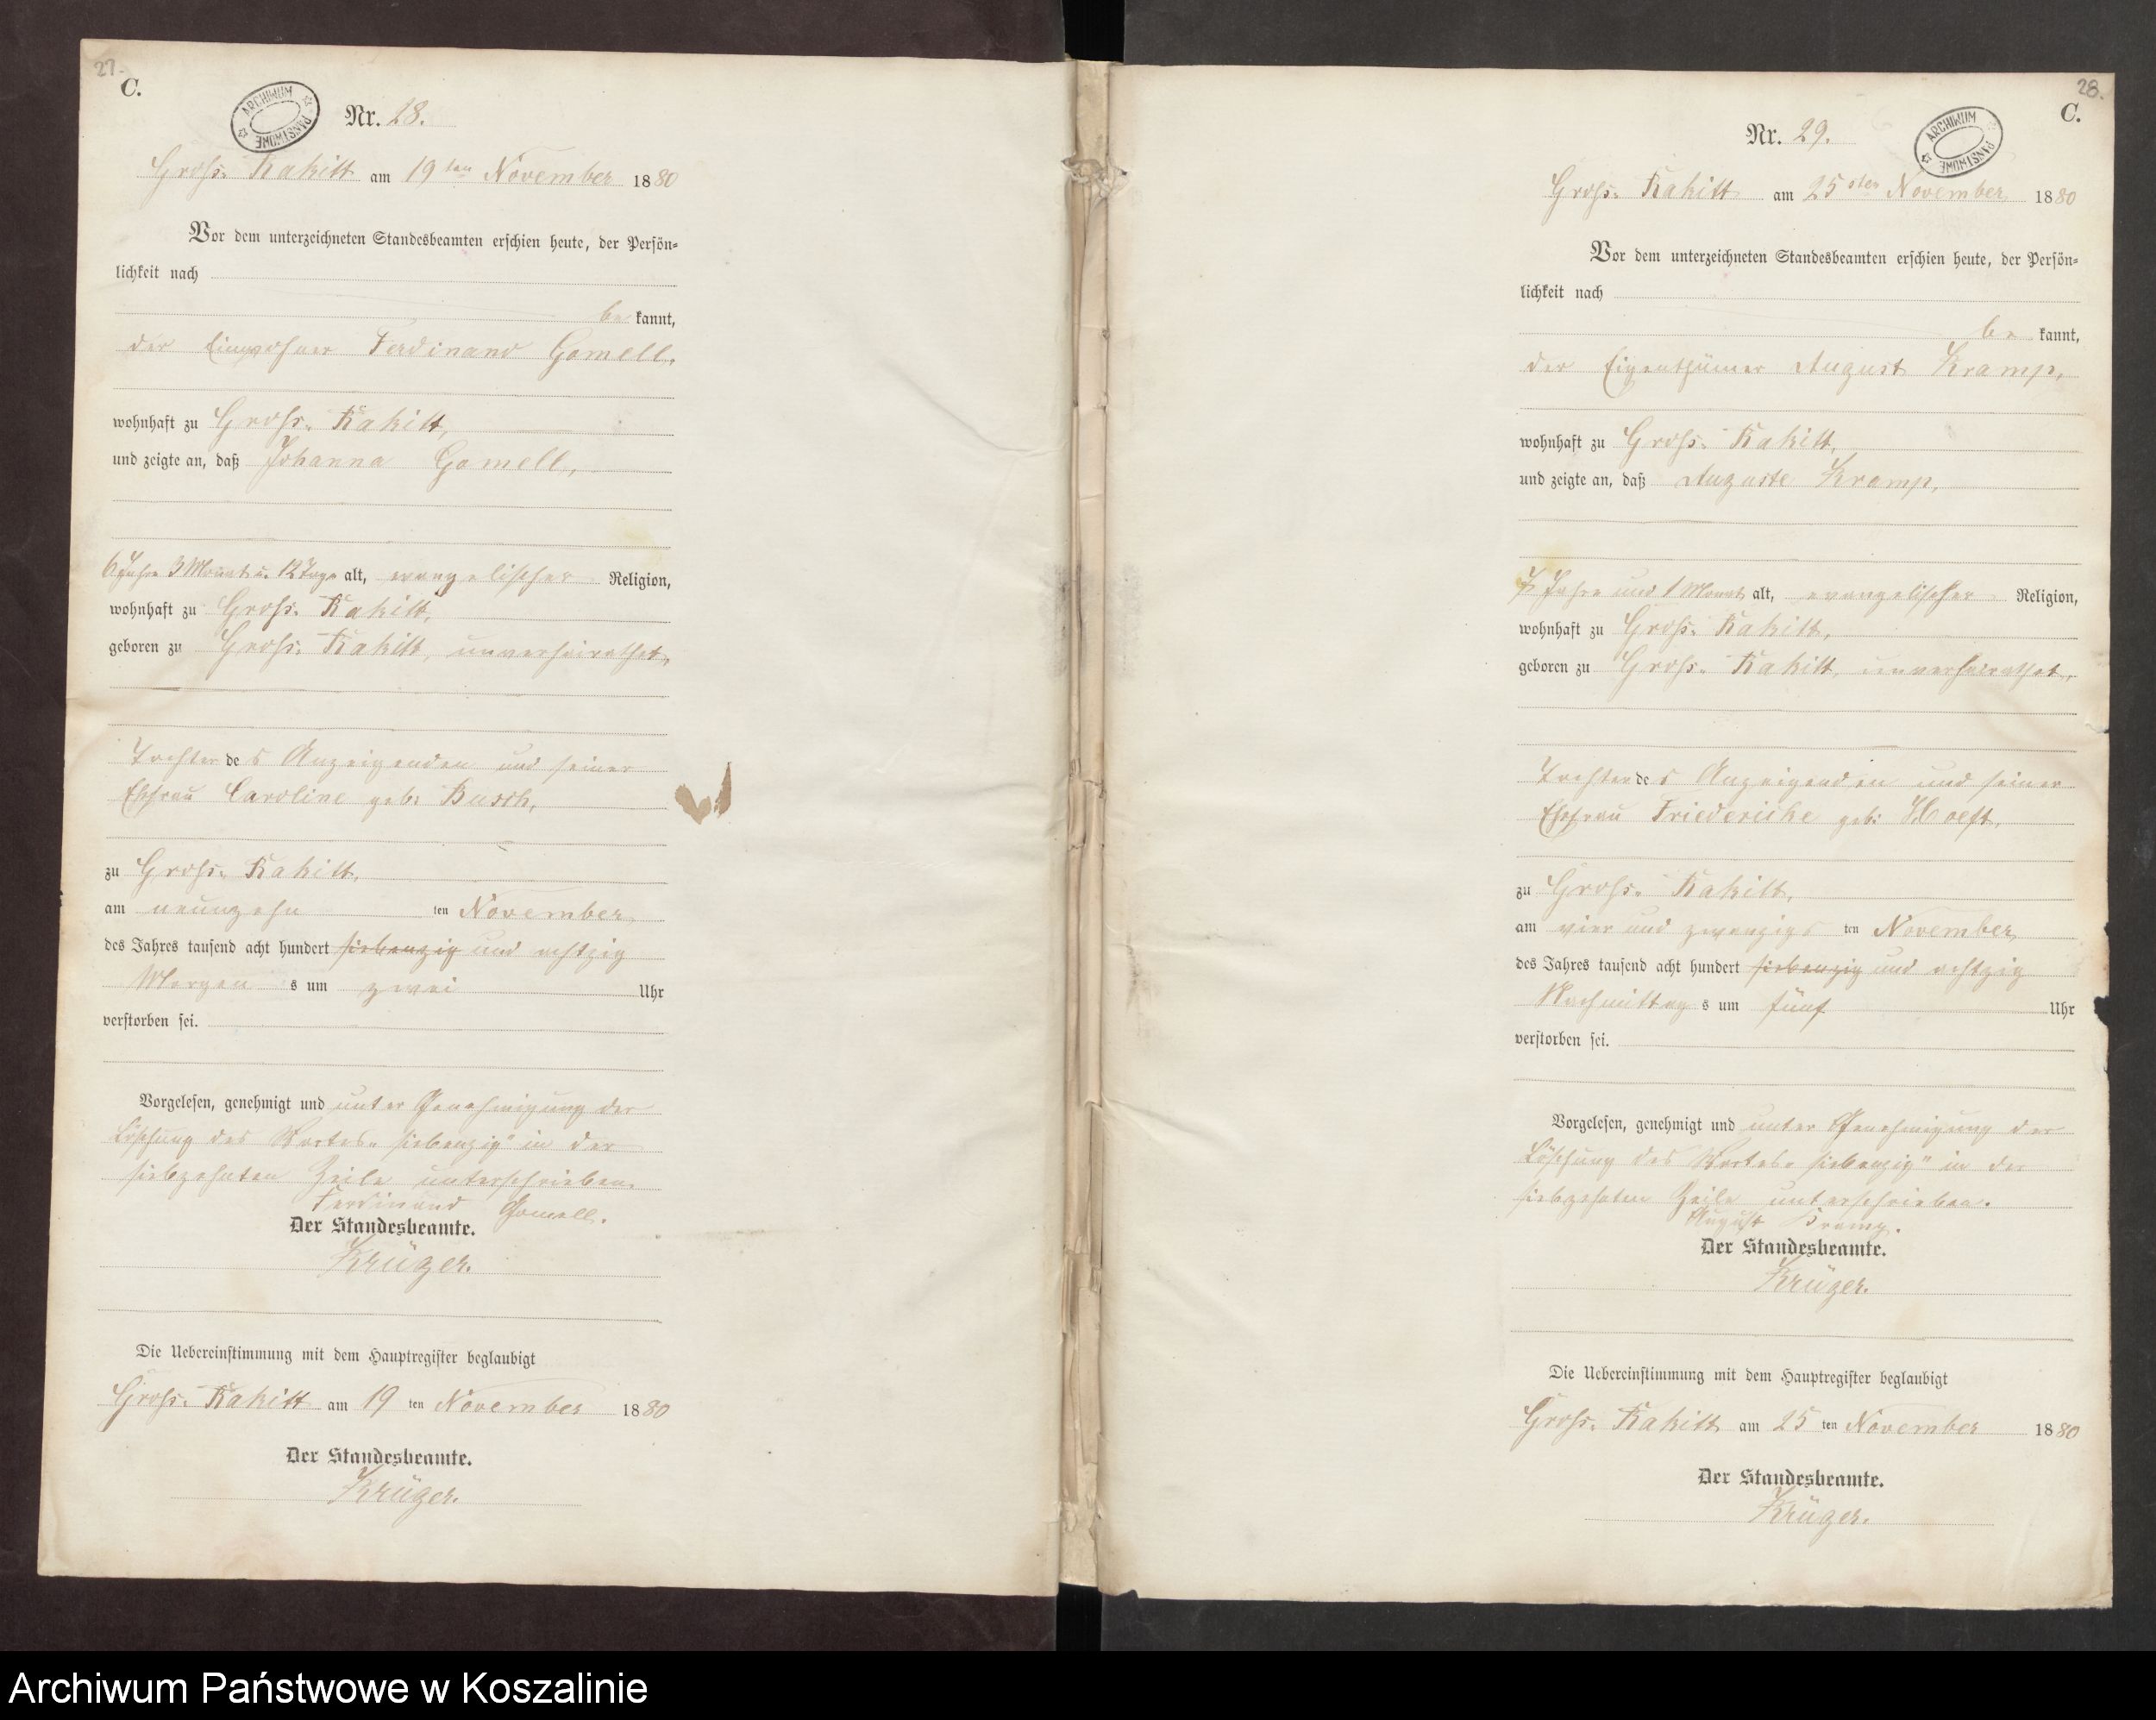 27.
C.
ARCHIWUM PAŃSTWOWE
Nr. 28.
Groß-Rakitt am 19ten November 1880
Vor dem unterzeichneten Standesbeamten erschien heute, der Persön-
lichkeit nach
be kannt,
der Einwohner Ferdinand Gomell,
wohnhaft zu Groß-Rakitt,
und zeigte an, daß Johanna Gomell,
6 Jahre 3 Monat u. 12 Tage alt, evangelischer Religion,
wohnhaft zu Groß-Rakitt,
geboren zu Groß-Rakitt, unverheirathet,
Tochter des Anzeigenden und seiner
Ehefrau Caroline geb: Busch,
zu Groß-Rakitt,
am neunzehn ten November
des Jahres tausend acht hundert siebenzig und achtzig
Morgen s um zwei Uhr
verstorben sei.
Vorgelesen, genehmigt und unter Genehmigung der
Löschung des Wortes „siebenzig" in der
siebzehnten Zeile unterschrieben.
Ferdinand Gomell.
Der Standesbeamte.
Krüger.
Die Uebereinstimmung mit dem Hauptregister beglaubigt
Groß-Rakitt am 19 ten November 1880
Der Standesbeamte.
Krüger.
28.
C.
ARCHIWUM PAŃSTWOWE
Nr. 29.
Groß-Rakitt am 25sten November 1880
Vor dem unterzeichneten Standesbeamten erschien heute, der Persön-
lichkeit nach
be kannt,
der Eigenthümer August Kramp,
wohnhaft zu Groß-Rakitt,
und zeigte an, daß Auguste Kramp,
7 Jahre und 1 Monat alt, evangelischer Religion,
wohnhaft zu Groß-Rakitt,
geboren zu Groß-Rakitt, unverheirathet,
Tochter des Anzeigenden und seiner
Ehefrau Friedericke geb:
zu Groß-Rakitt,
am vier und zwanzigs ten November
des Jahres tausend acht hundert siebenzig und achtzig
Nachmittag s um fünf Uhr
verstorben sei.
Vorgelesen, genehmigt und unter Genehmigung der
Löschung des Wortes „siebenzig" in der
siebzehnten Zeile unterschrieben.
August Kramp.
Der Standesbeamte.
Krüger.
Die Uebereinstimmung mit dem Hauptregister beglaubigt
Groß-Rakitt am 25 ten November 1880
Der Standesbeamte.
Krüger.
Archiwum Państwowe w Koszalinie